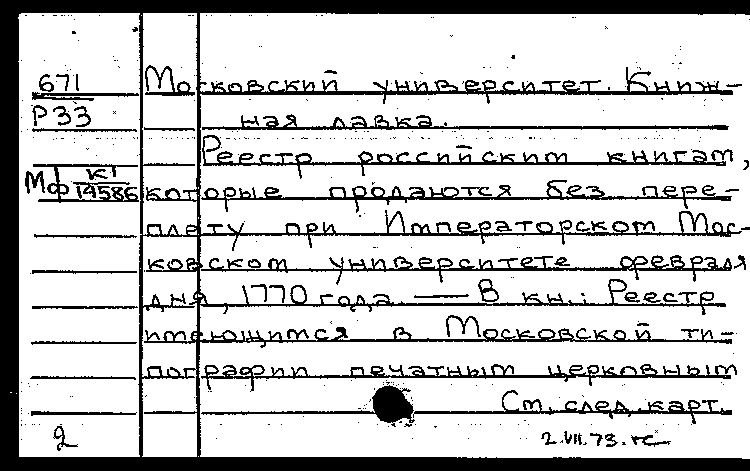 671 Московский университет. Книж-
Р33 ная лавка.
Реестр российским книгам,
Мф К1/14586 которые продаются без пере-
плету при Императорском Мос-
ковском университете февраля
дня, 1770 года. — В кн.: Реестр
имеющимся в Московской ти-
пографии печатным церковным
См. след. карт.
2 2.VII.73.